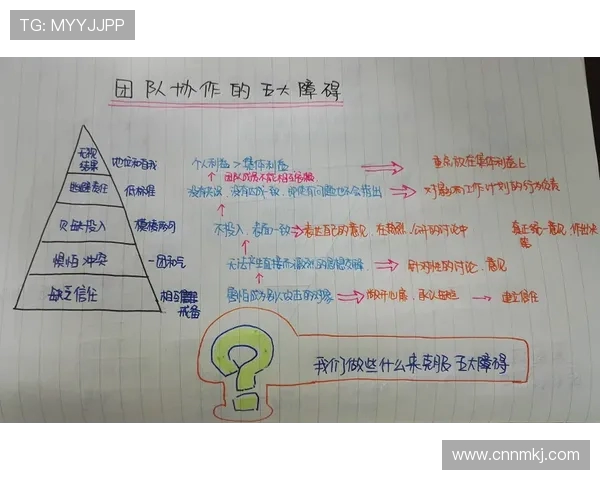 TG: MYYJJPP
团队协作的五大障碍
无视结果 地位和自我 个人利益＞集体利益 重点放在集体利益上
团队成员不能相互
逃避责任 低标准 没有 没有 一致，即使有问题也不会指出 对 工作计划的行为负责
投入 模棱两可 不投入，表面一致 表达自己的意见，在 公开的讨论中 真正统一意见，作出决
惧怕冲突 一团和气 无法产生直接而激烈的思想交锋 针对性的讨论、意见
缺乏信任 相互 戒备 害怕成为别人攻击的对象 敞开心扉，承认 建立信任
我们做些什么来克服五大障碍
www.cnnmkj.com